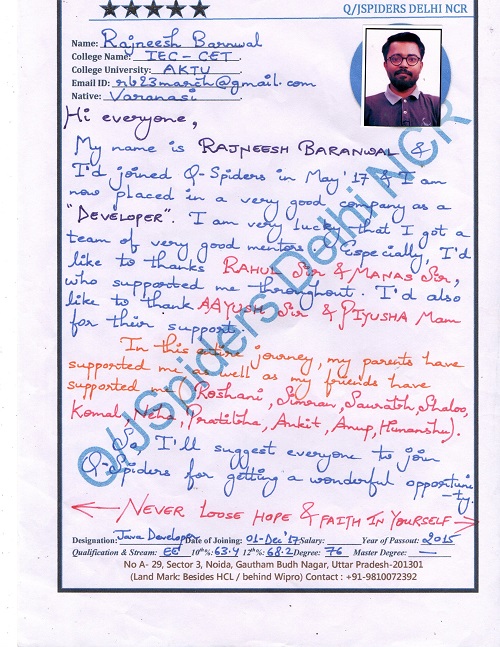 Q/JSPIDERS DELHI NCR
Name: Rajneesh Barnwal
College Name: IEC - CET
College University: AKTU
Email ID: rb23march@gmail.com
Native: Varanasi
Hi everyone,
My name is RAJNEESH BARANWAL &
I'd joined Q-Spiders in May'17 & I am
now placed in a very good company as a
"DEVELOPER". I am very lucky that I got a
team of very good mentors. Especially, I'd
like to thanks RAHUL Sir & MANAS Sir,
who supported me throughout. I'd also
like to thank AAYUSH Sir & PIYUSHA Mam
for their support.
In this entire journey, my parents have
supported me as well as my friends have
supported me (Roshani, Simran, Saurabh, Shaloo,
Komal, Neha, Pratibha, Ankit, Anup, Himanshu).
So, I'll suggest everyone to join
Q-Spiders for getting a wonderful opportuni
-ty.
NEVER LOOSE HOPE & FAITH IN YOURSELF
Designation: Java Developer Date of Joining: 01-Dec'17 Salary: Year of Passout: 2015
Qualification & Stream: EE 10th%: 63.4 12th%: 68.2 Degree: 76 Master Degree: —
No A- 29, Sector 3, Noida, Gautham Budh Nagar, Uttar Pradesh-201301
(Land Mark: Besides HCL / behind Wipro) Contact : +91-9810072392
Q/JSpiders Delhi NCR